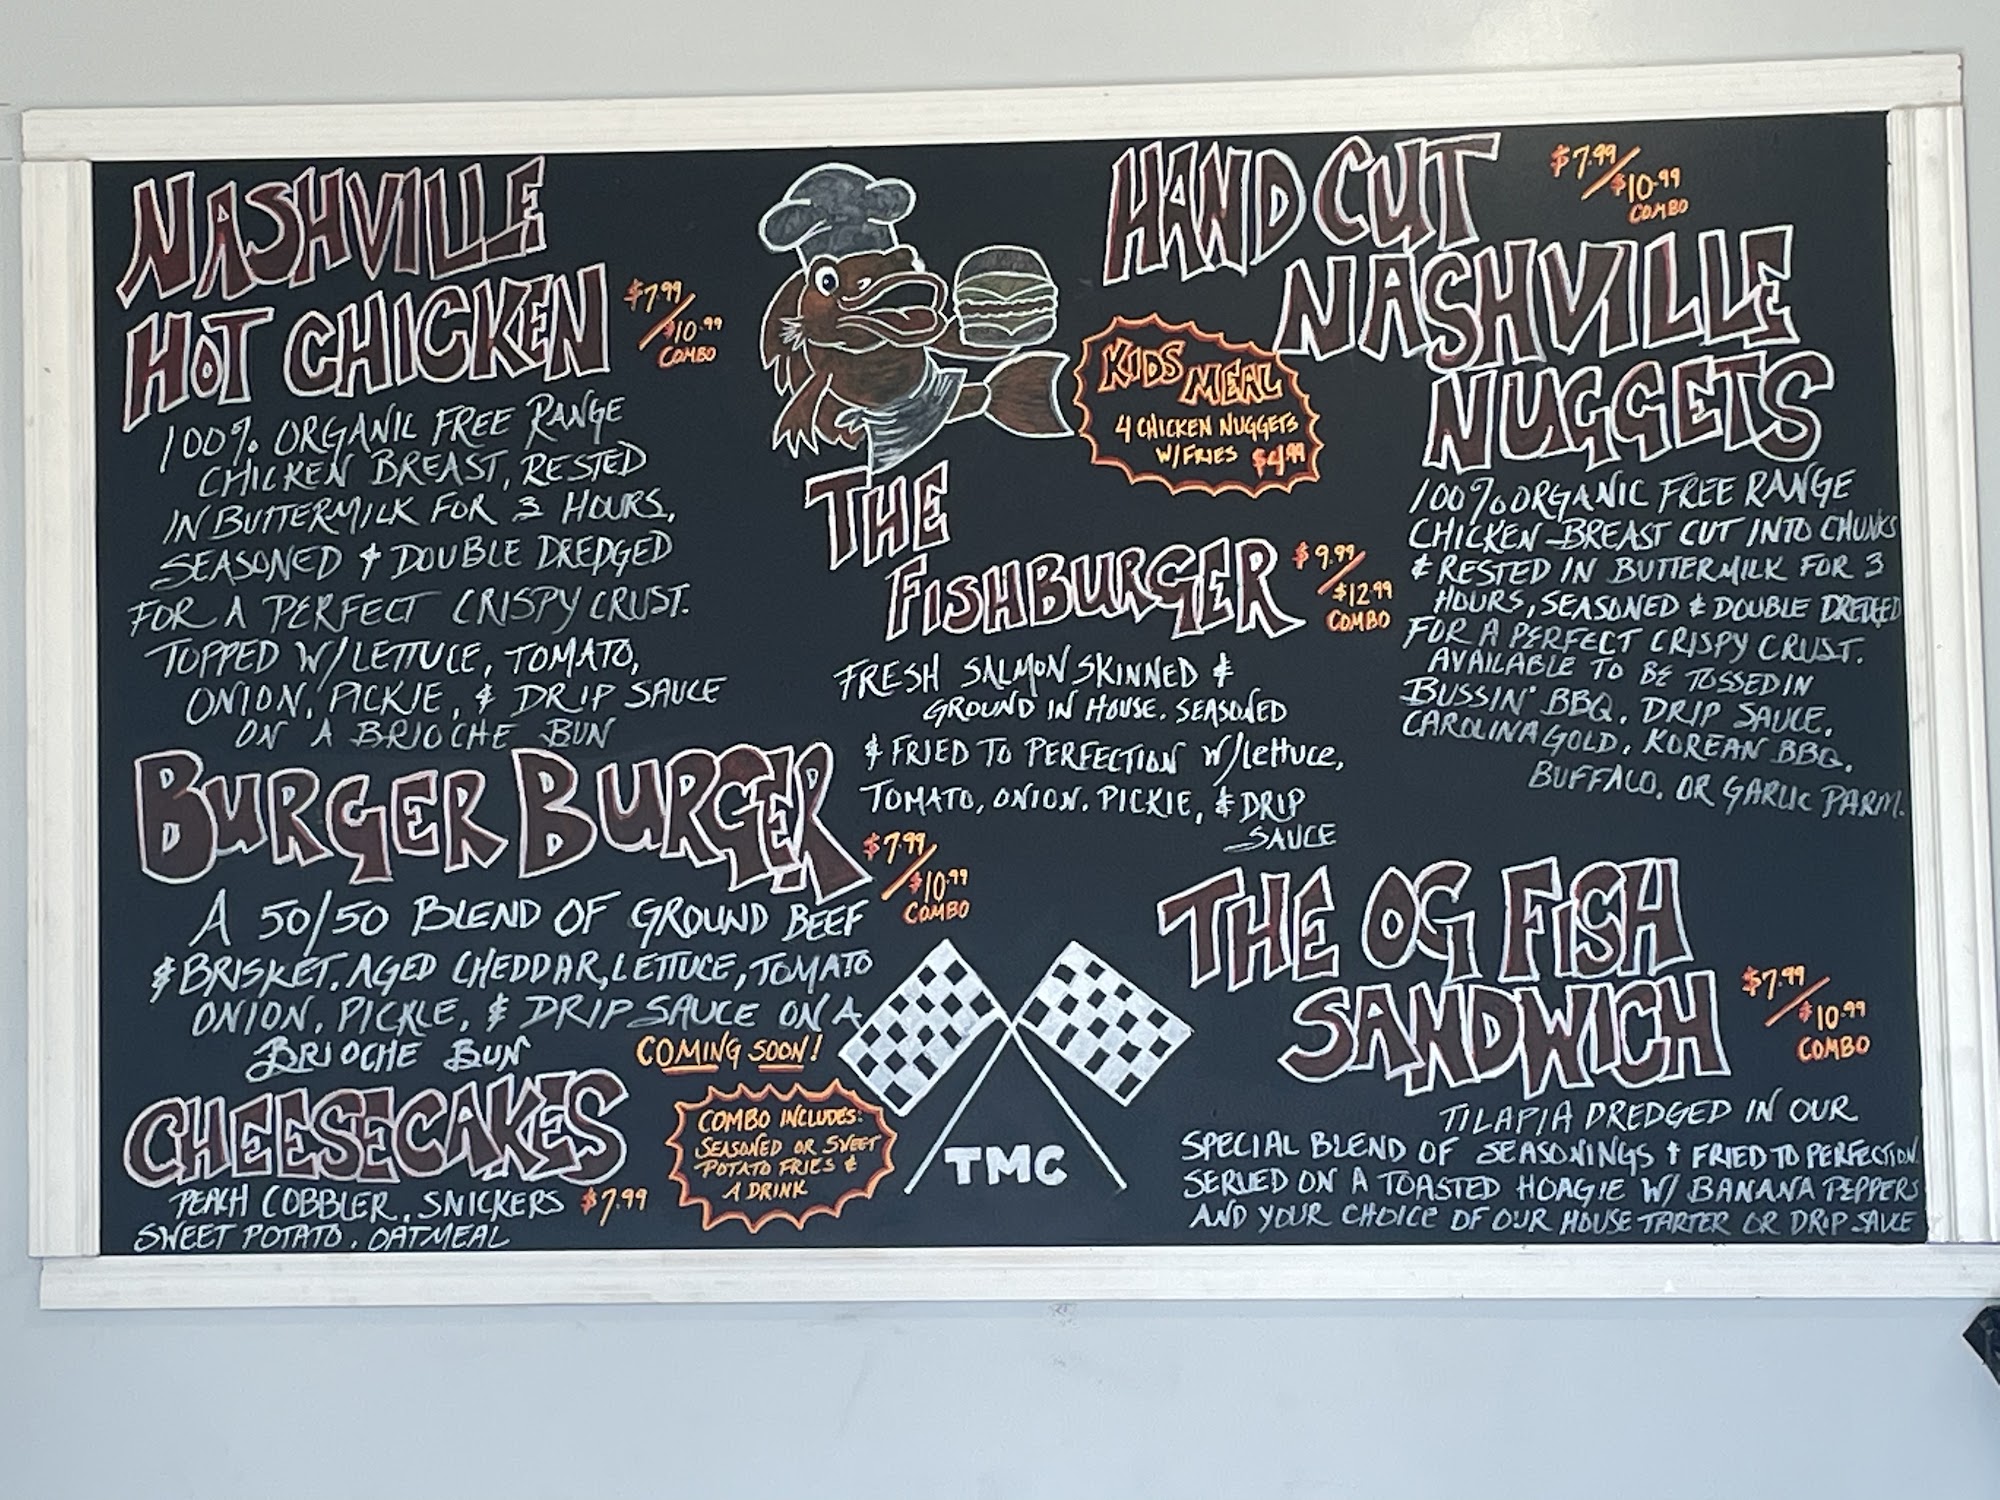 NASHVILLE
HOT CHICKEN
$7.99/
$10.99
COMBO
100% ORGANIC FREE RANGE
CHICKEN BREAST, RESTED
IN BUTTERMILK FOR 3 HOURS,
SEASONED & DOUBLE DREDGED
FOR A PERFECT CRISPY CRUST.
TOPPED W/LETTUCE, TOMATO,
ONION, PICKLE, & DRIP SAUCE
ON A BRIOCHE BUN
BURGER BURGER
$7.99/
$10.99
COMBO
A 50/50 BLEND OF GROUND BEEF
& BRISKET. AGED CHEDDAR, LETTUCE, TOMATO
ONION, PICKLE, & DRIP SAUCE ON A
BRIOCHE BUN
COMING SOON!
CHEESECAKES
PEACH COBBLER, SNICKERS $7.99
SWEET POTATO, OATMEAL
COMBO INCLUDES:
SEASONED OR SWEET
POTATO FRIES &
A DRINK
KIDS MEAL
4 CHICKEN NUGGETS
W/FRIES $4.99
THE
FISHBURGER
$9.99/
$12.99
COMBO
FRESH SALMON SKINNED &
GROUND IN HOUSE. SEASONED
& FRIED TO PERFECTION W/lettuce,
TOMATO, ONION, PICKLE, & DRIP
SAUCE
TMC
HAND CUT
NASHVILLE
NUGGETS
$7.99/
$10.99
COMBO
100% ORGANIC FREE RANGE
CHICKEN BREAST CUT INTO CHUNKS
& RESTED IN BUTTERMILK FOR 3
HOURS, SEASONED & DOUBLE DREDGED
FOR A PERFECT CRISPY CRUST.
AVAILABLE TO BE TOSSED IN
BUSSIN' BBQ, DRIP SAUCE,
CAROLINA GOLD, KOREAN BBQ,
BUFFALO, OR GARLIC PARM.
THE OG FISH
SANDWICH
$7.99/
$10.99
COMBO
TILAPIA DREDGED IN OUR
SPECIAL BLEND OF SEASONINGS & FRIED TO PERFECTION
SERVED ON A TOASTED HOAGIE W/ BANANA PEPPERS
AND YOUR CHOICE OF OUR HOUSE TARTER OR DRIP SAUCE